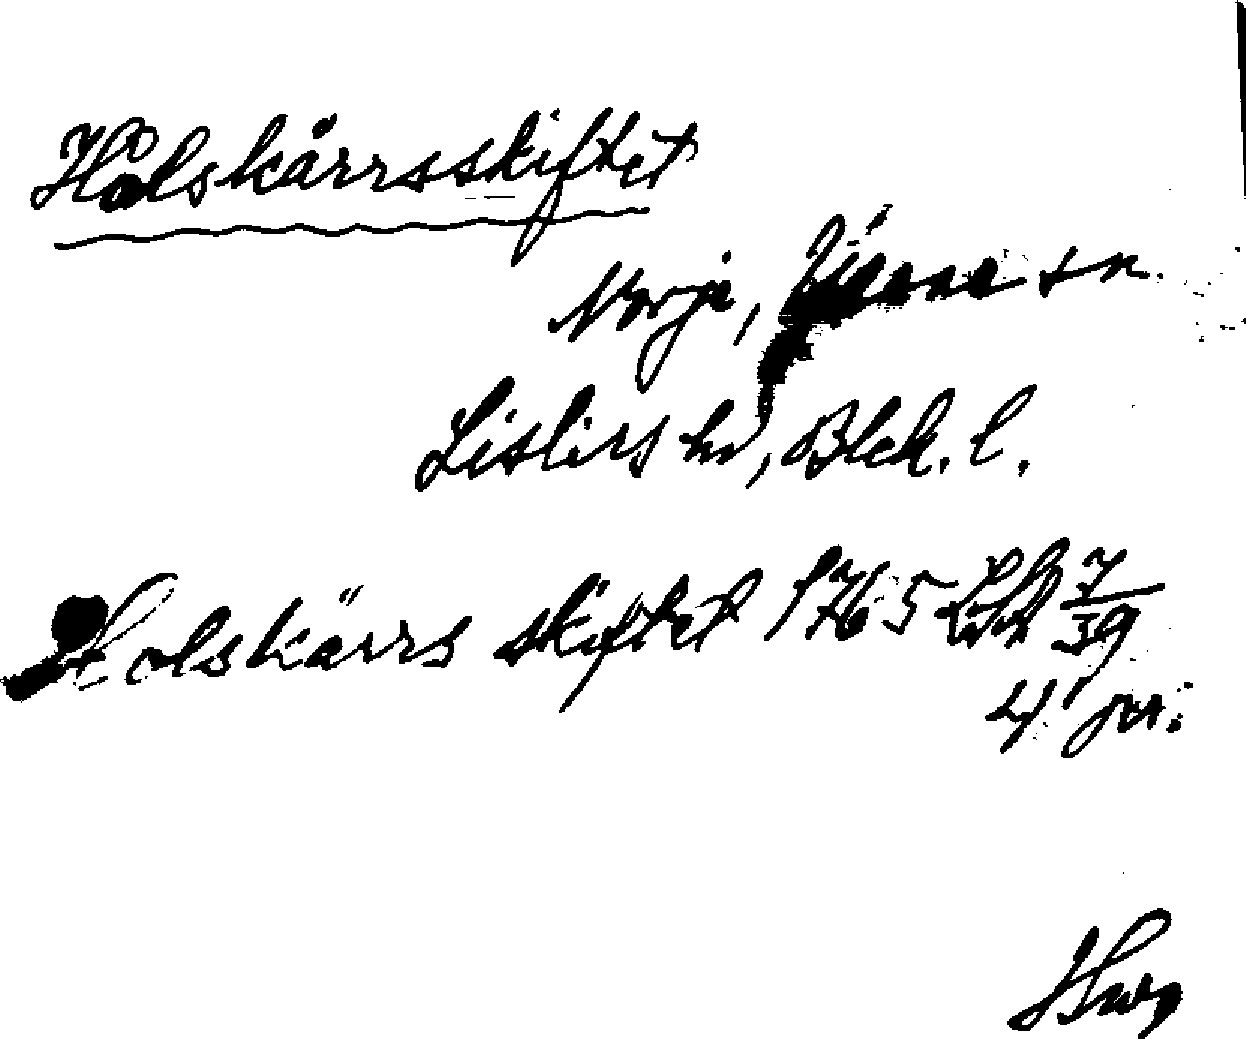 Hålskärrsskiftet
Norje, Ysane sn.
Listers hd, Blek. l.
Holskärrs skiftet 1765 Lskt 7/39
4 jur.